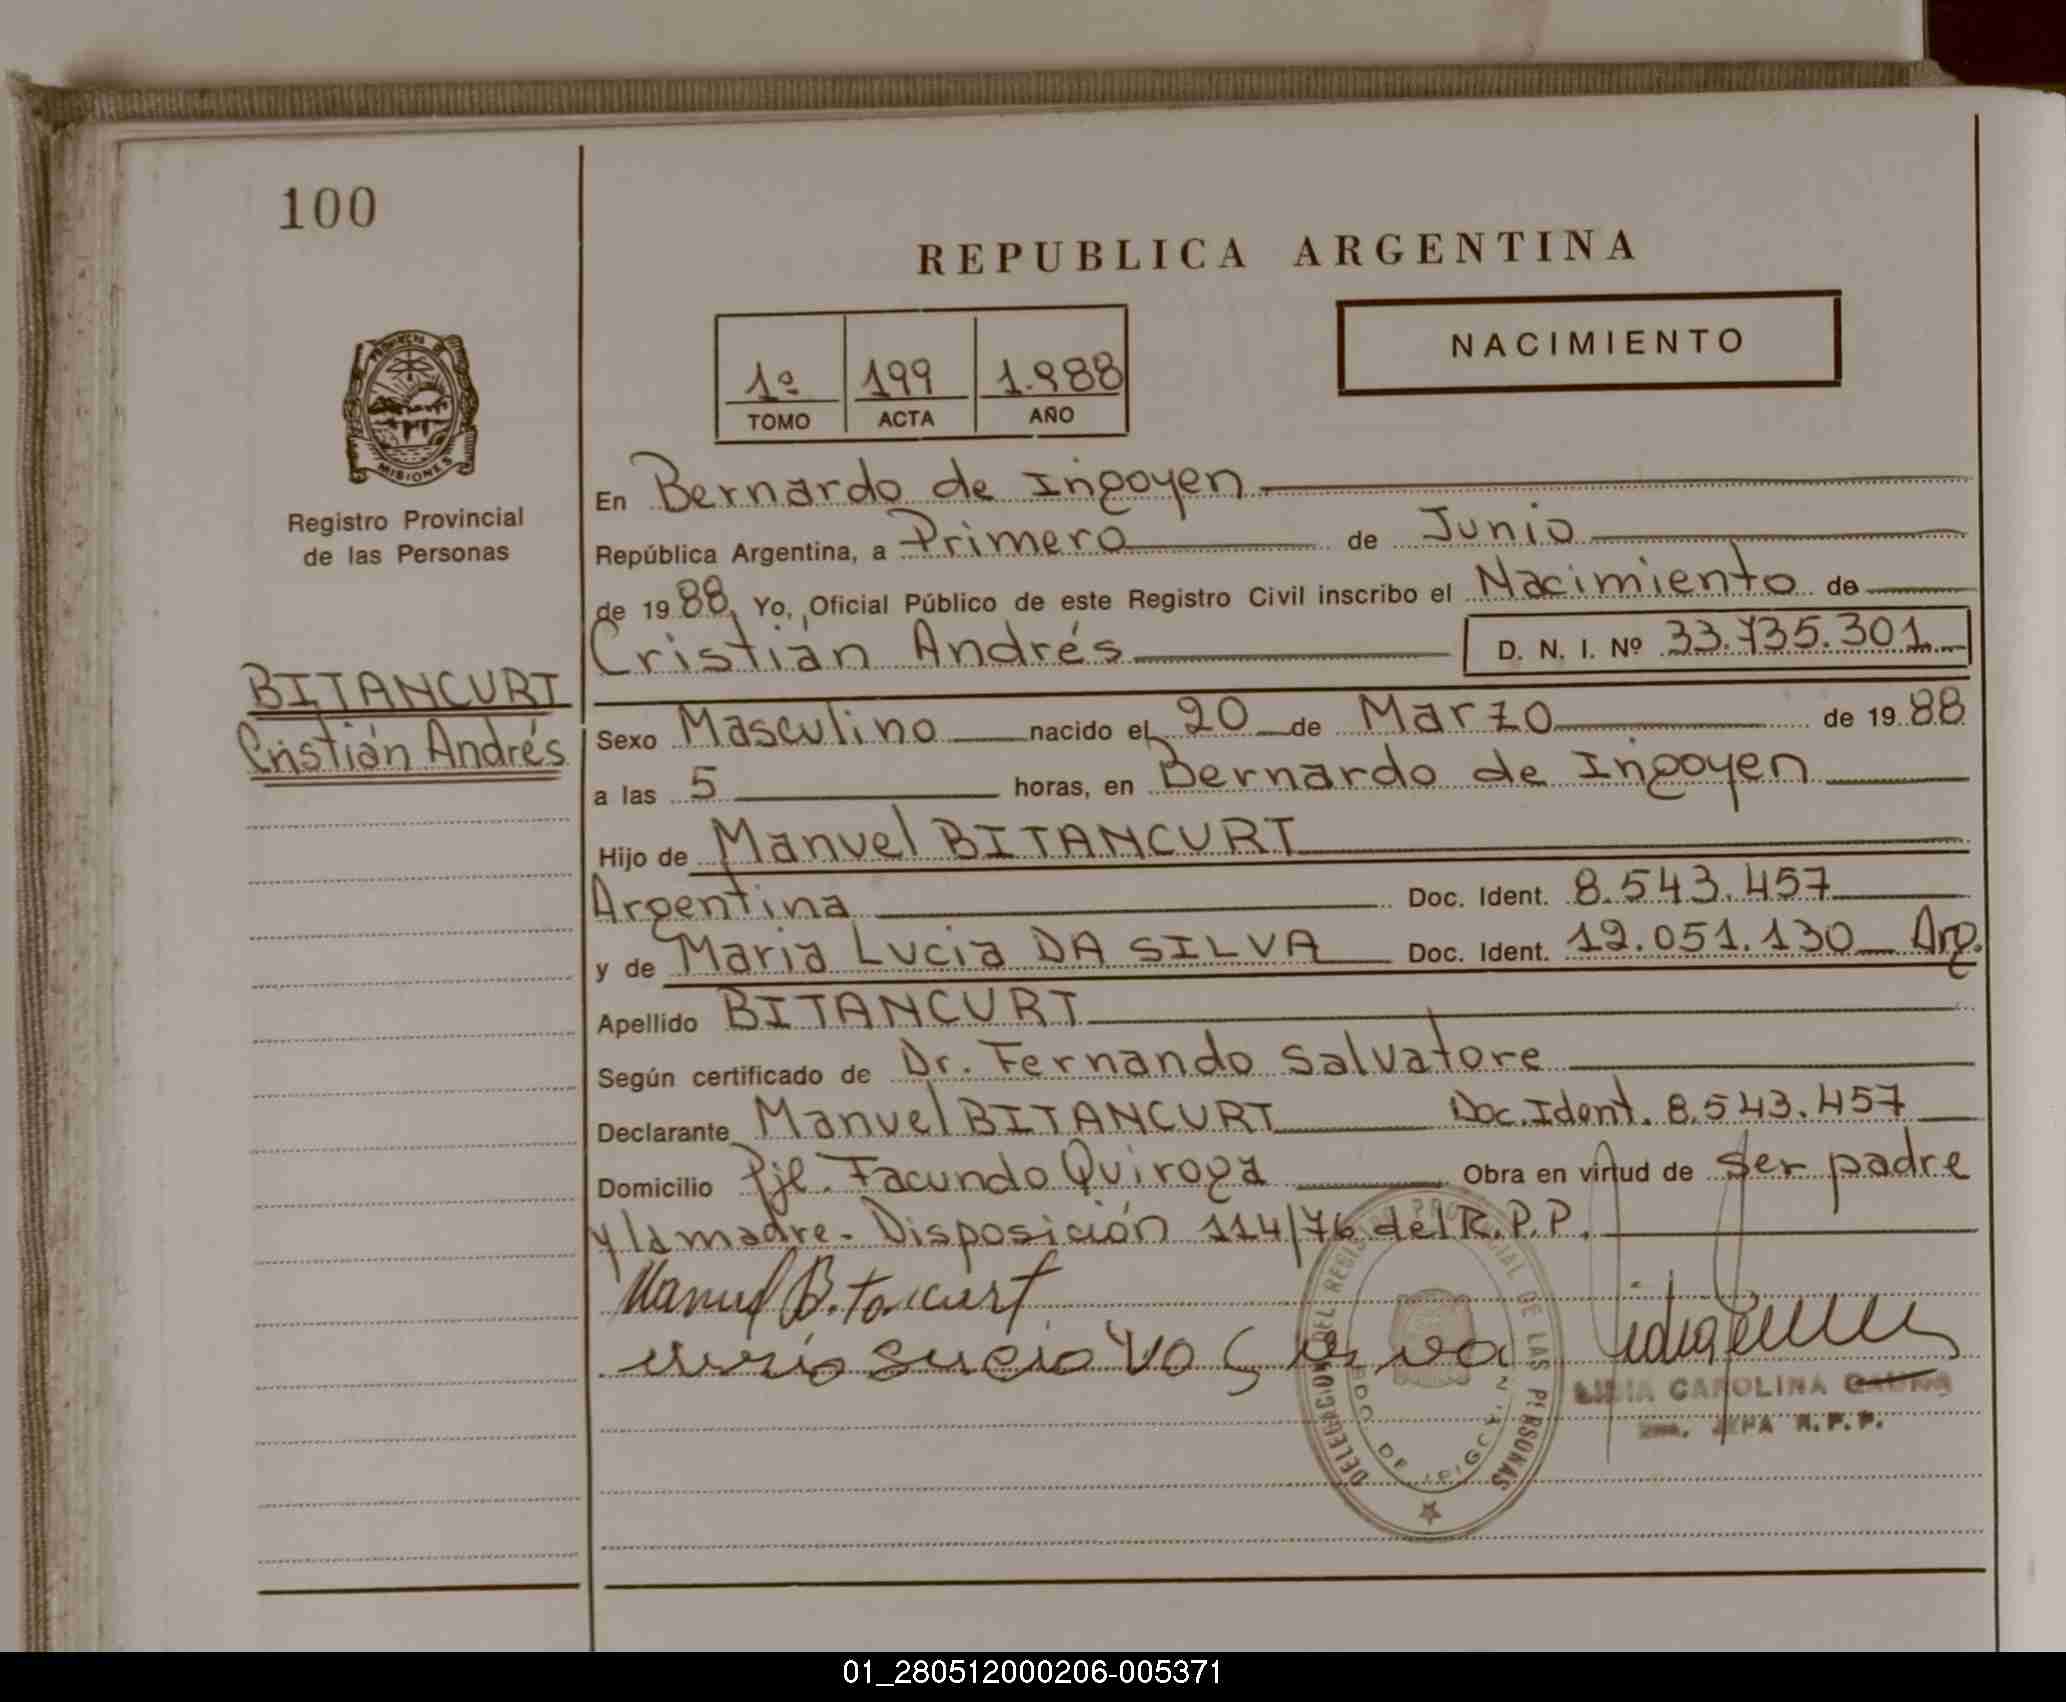 100
REPUBLICA ARGENTINA
NACIMIENTO
1º 199 1.988
TOMO ACTA AÑO
MISIONES
Registro Provincial
de las Personas
BITANCURT
Cristián Andrés
En Bernardo de Irigoyen
República Argentina, a Primero de Junio
de 1988, Yo, Oficial Público de este Registro Civil inscribo el Nacimiento de
Cristián Andrés D. N. I. Nº 33.735.301
Sexo Masculino nacido el 20 de Marzo de 1988
a las 5 horas, en Bernardo de Irigoyen
Hijo de Manuel BITANCURT
Argentina Doc. Ident. 8.543.457
y de Maria Lucia DA SILVA Doc. Ident. 12.051.130 Arg.
Apellido BITANCURT
Según certificado de Dr. Fernando Salvatore
Declarante Manuel BITANCURT Doc. Ident. 8.543.457
Domicilio Pje. Facundo Quiroga Obra en virtud de ser padre
y la madre. Disposición 114/76 del R.P.P.
Manuel Bitancurt
DELEGACION DEL REGISTRO PROVINCIAL DE LAS PERSONAS
BDO. DE IRIGOYEN
CAROLINA
JEFA R.P.P.
01_280512000206-005371